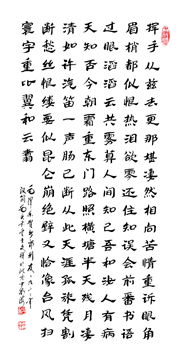 挥手从兹去更那堪凄然相向苦情重诉眼角
眉梢都似恨热泪欲零还住知误会前番书语
过眼滔滔云共雾算人间知己吾和汝人有病
天知否今朝霜重东门路照横塘半天残月凄
清如许汽笛一声肠已断从此天涯孤旅凭割
断愁丝恨缕要似昆仑崩绝壁又恰像台风扫
寰宇重比翼和云翥
毛泽东贺新郎别友